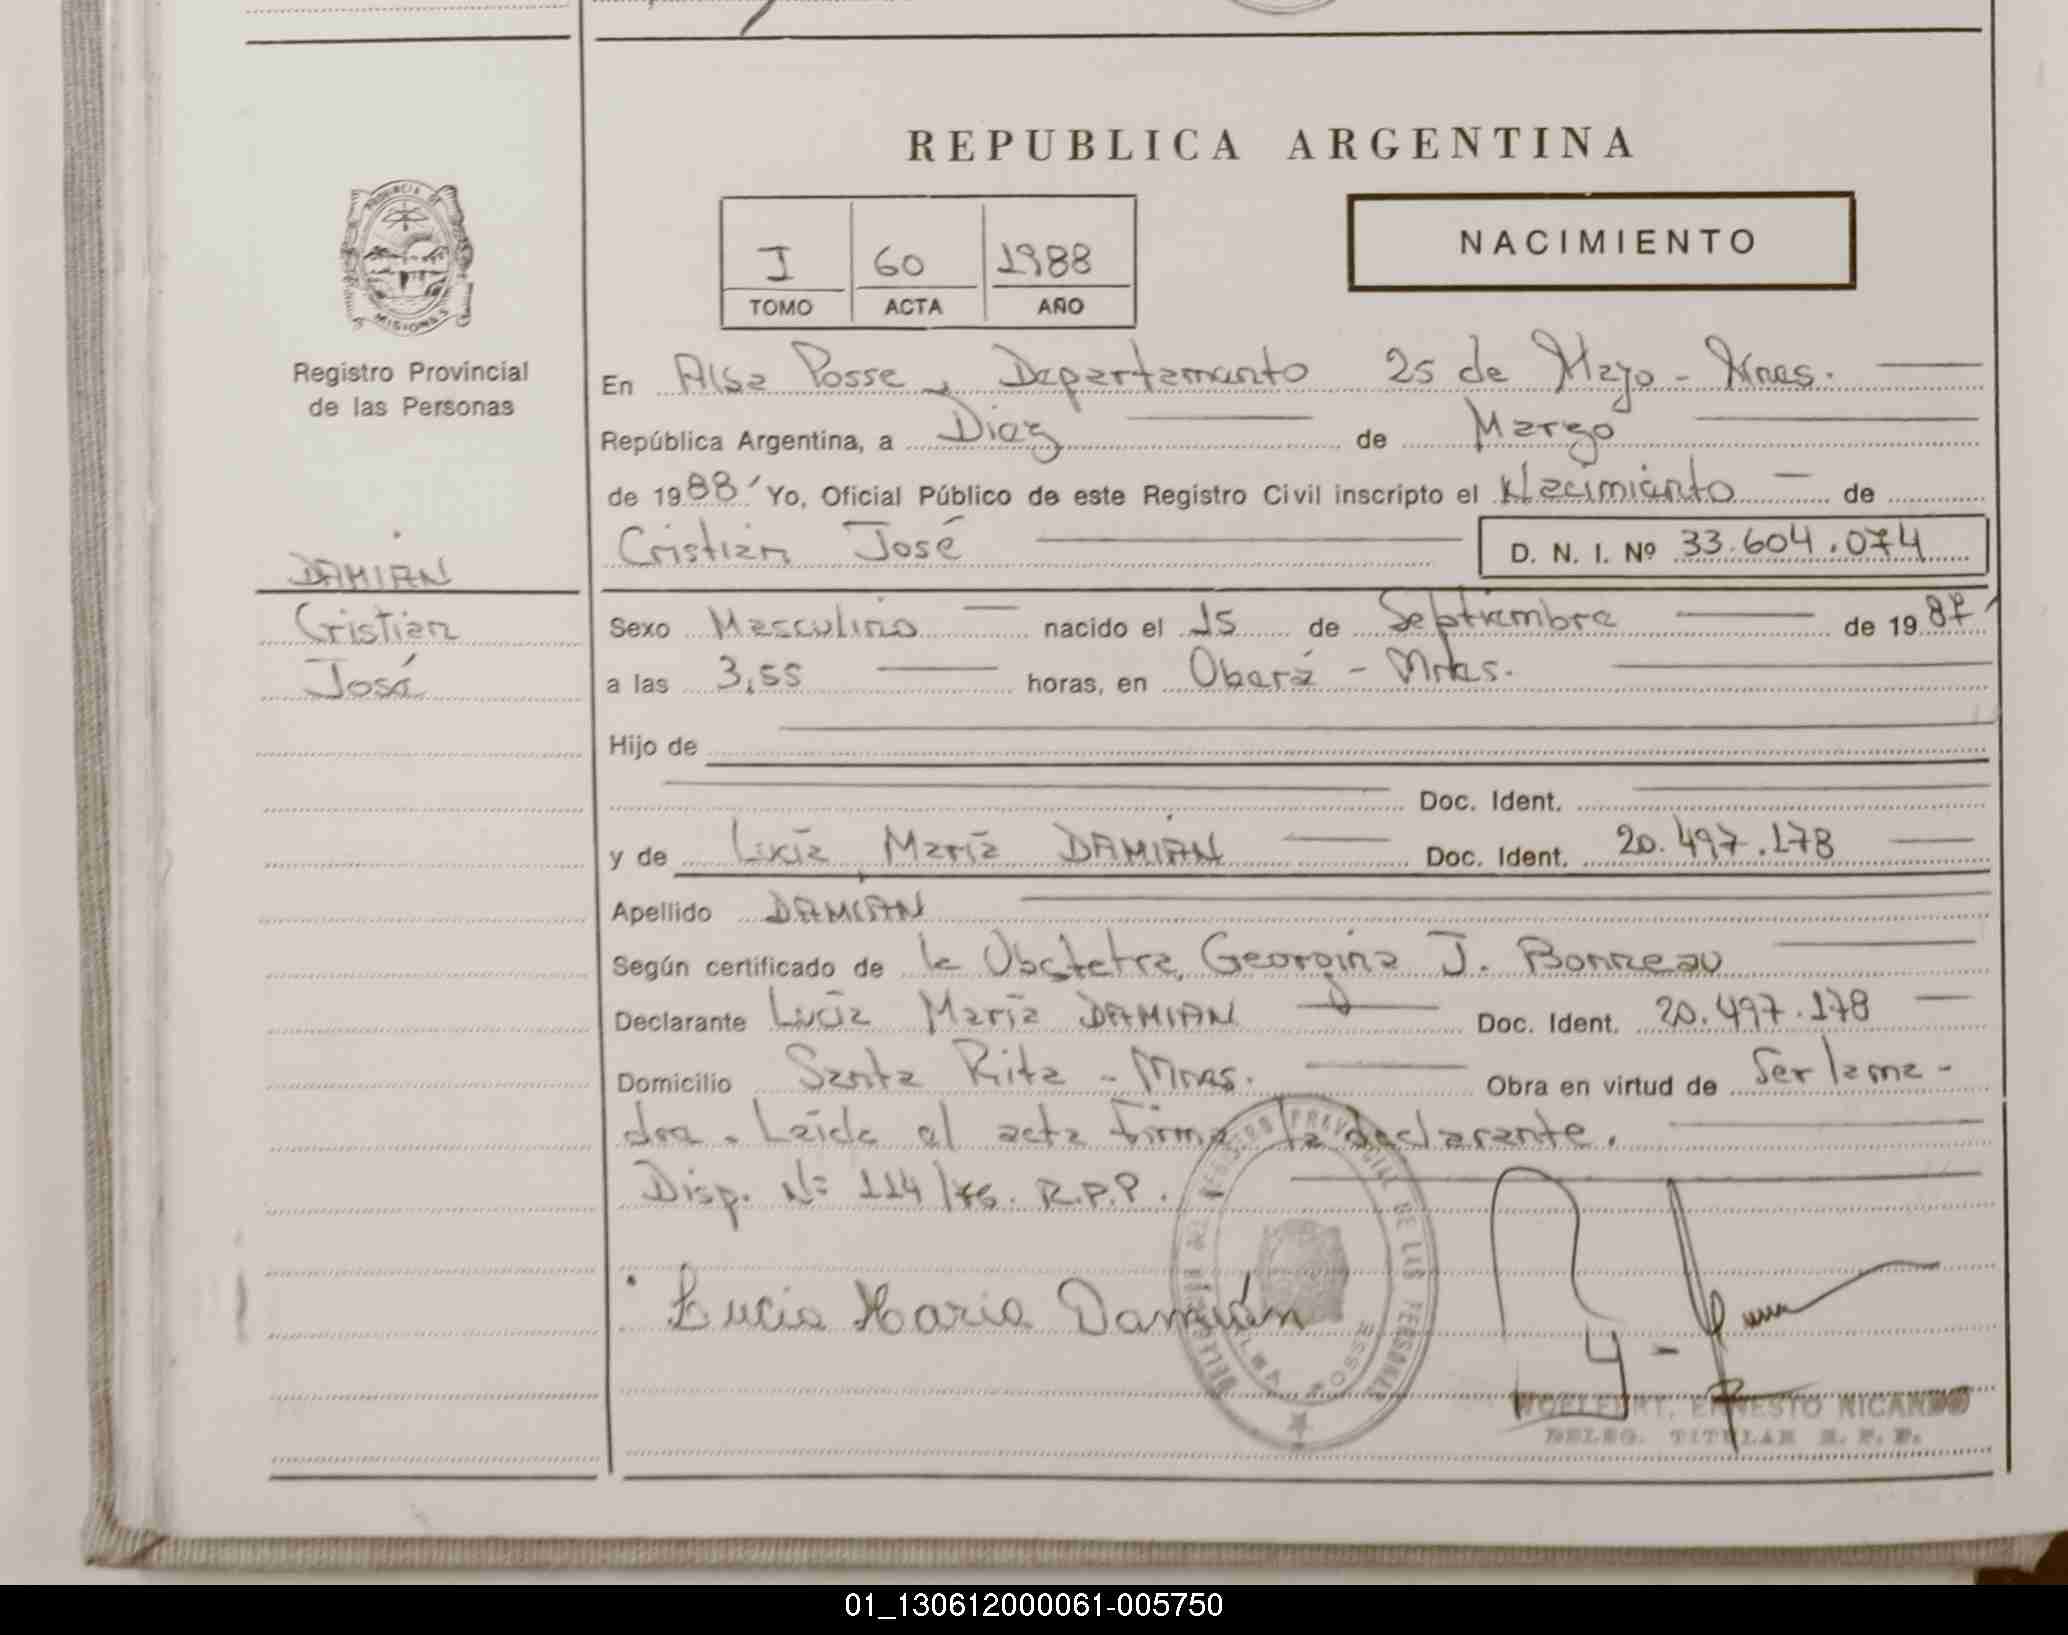 REPUBLICA ARGENTINA
PROVINCIA DE
MISIONES
Registro Provincial
de las Personas
I 60 1988
TOMO ACTA AÑO
NACIMIENTO
En Alba Posse, Departamento 25 de Mayo - Mnes.
República Argentina, a Diez de Marzo
de 1988 Yo, Oficial Público de este Registro Civil inscripto el Nacimiento de
Cristian José D. N. I. Nº 33.604.074
DAMIÁN
Cristian
José
Sexo Masculino nacido el 15 de Septiembre de 1987
a las 3,55 horas, en Oberá - Mnes.
Hijo de
Doc. Ident.
y de Lucía María DAMIÁN Doc. Ident. 20.497.178
Apellido DAMIÁN
Según certificado de la Obstetra, Georgina J. Bonneau
Declarante Lucía María DAMIAN Doc. Ident. 20.497.178
Domicilio Santa Rita - Mnes. Obra en virtud de Ser la ma-
dre. Leída el acta firma la declarante.
Disp. Nº 114/76. R.P.P.
Lucia Maria Damián
DEL REGISTRO PROVINCIAL DE LAS PERSONAS
ALBA POSSE
ERNESTO RICARDO
DELEG. TITULAR R. P. P.
01_130612000061-005750